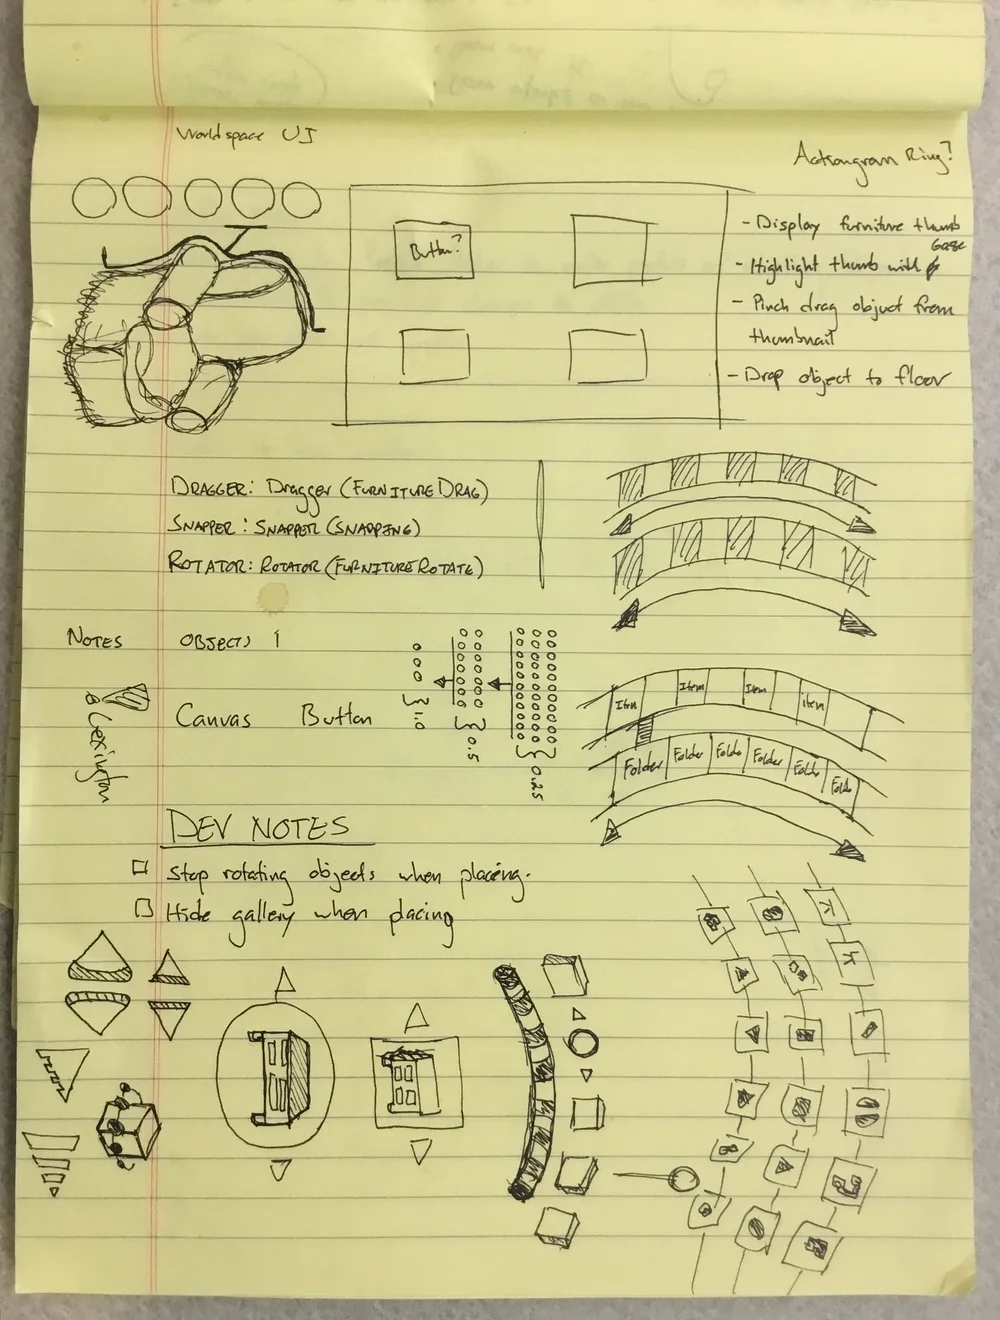 Worldspace UI
Actiongram Ring?
Button?
- Display furniture thumb
- Highlight thumb with
Gaze
- Pinch drag object from
thumbnail
- Drop object to floor
DRAGGER: Dragger (FURNITURE DRAG)
SNAPPER: SNAPPER (SNAPPING)
ROTATOR: ROTATOR (FURNITURE ROTATE)
NOTES
OBJECTS 1
Canvas Button
1.0
0.5
0.25
Lexington
Item Item Item item
Folder Folder Folde Folder Folde Folde
DEV NOTES
Stop rotating objects when placing.
Hide gallery when placing